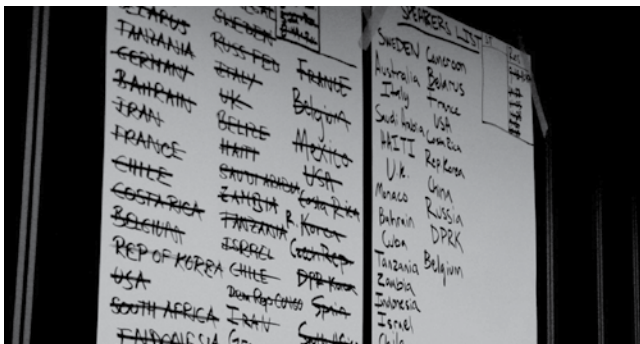 BELARUS
TANZANIA
GERMANY
BAHRAIN
IRAN
FRANCE
CHILE
COSTA RICA
BELGIUM
REP OF KOREA
USA
SOUTH AFRICA
INDONESIA
SWEDEN
RUSS FED
ITALY
UK
BELIZE
HAITI
SAUDI ARABIA
ZAMBIA
TANZANIA
ISRAEL
CHILE
Dem Rep Congo
IRAN
FRANCE
Belgium
Mexico
USA
Costa Rica
R. Korea
Czech Rep
DPR Korea
Spain
South Africa
SPEAKERS LIST
SWEDEN
Australia
Italy
Saudi Arabia
HAITI
U.K.
Monaco
Bahrain
Cuba
Tanzania
Zambia
Indonesia
Israel
Chile
Cameroon
Belarus
France
USA
Costa Rica
Rep. Korea
China
Russia
DPRK
Belgium